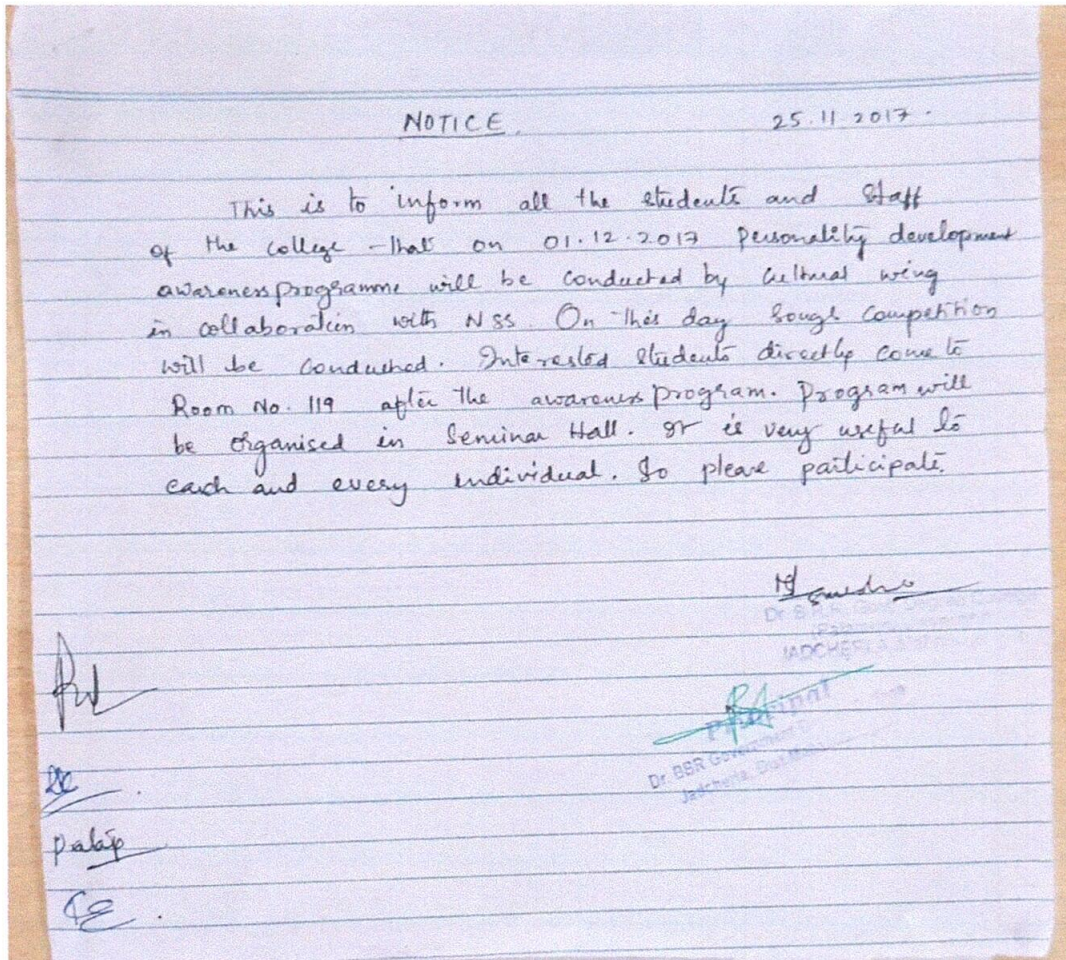 NOTICE. 25.11.2017.
This is to inform all the students and Staff
of the college that on 01.12.2017 Personality development
awareness programme will be conducted by Cultural wing
in collaboration with NSS. On this day Songs Competition
will be conducted. Interested Students directly come to
Room No. 119 after the awareness program. Program will
be Organised in Seminar Hall. It is very useful to
each and every individual. So please participate.
Dr. B.R.R. Govt
JADCHERLA
Principal
Dr. BRR Government
Jadcherla, Dist.
Pratap